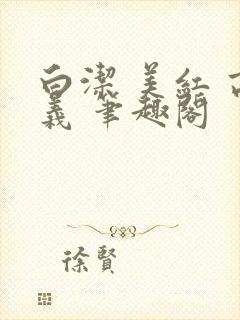 白潔 美紅 高
義 筆趣閣
徐賢